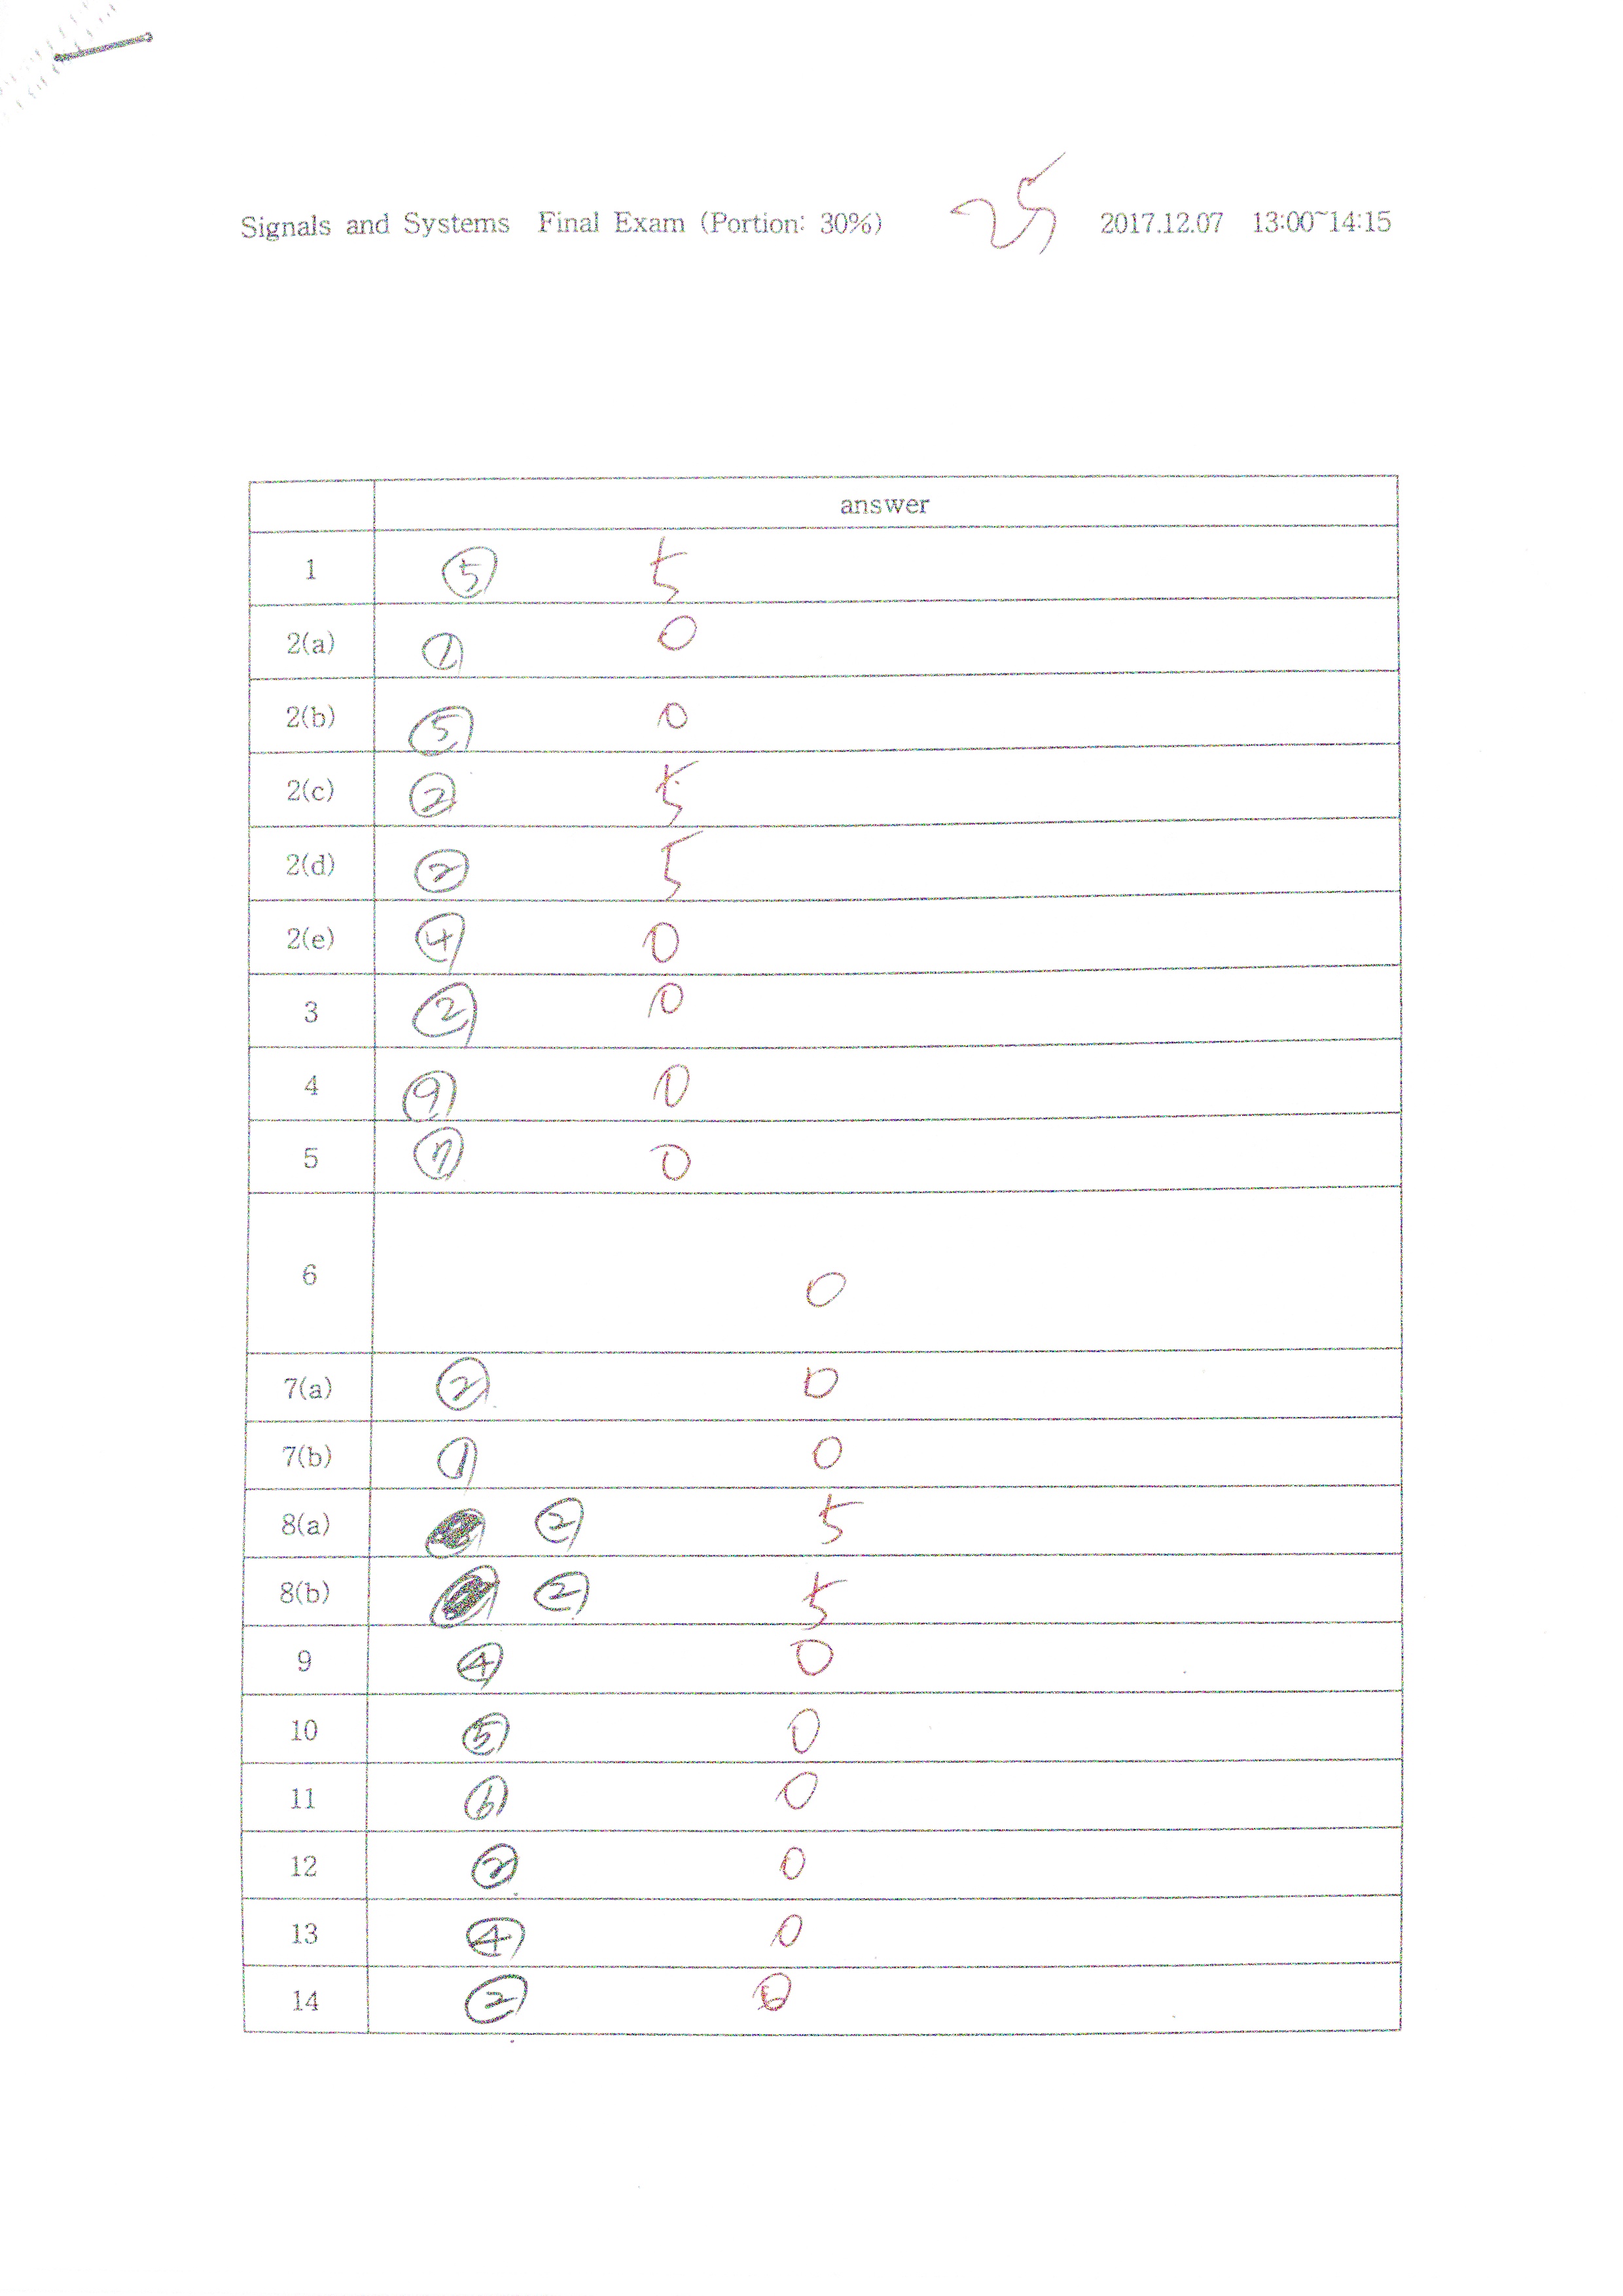 Signals and Systems Final Exam (Portion: 30%) 25 2017.12.07 13:00~14:15
answer
1 ⑤ 5
2(a) ① 0
2(b) ⑤ 0
2(c) ② 5
2(d) ② 5
2(e) ④ 0
3 ② 0
4 ⑨ 0
5 ⑦ 0
6 0
7(a) ② 0
7(b) ① 0
8(a) ② 5
8(b) ② 5
9 ④ 0
10 ⑤ 0
11 ⑥ 0
12 ② 0
13 ④ 0
14 ② 0